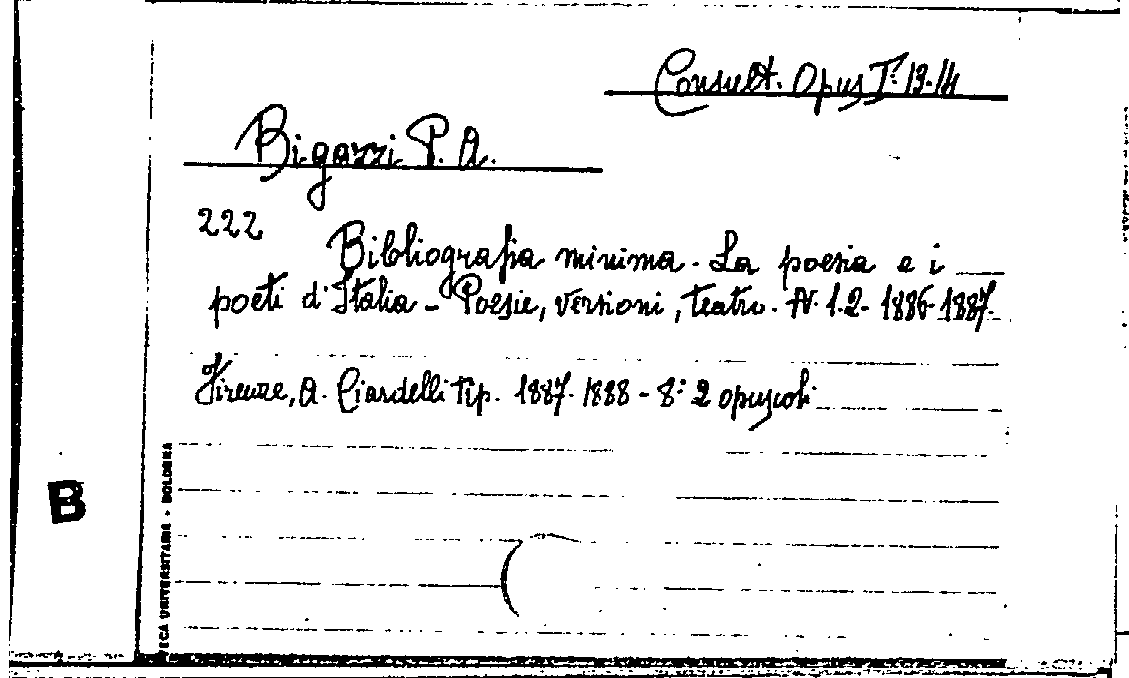 Consult. Opus I. 13-14
Bigazzi P. A.
222
Bibliografia minima. La poesia e i
poeti d'Italia - Poesie, versioni, teatro. N. 1.2- 1886-1887.
Firenze, A. Ciardelli tip. 1887-1888 - 8° 2 opuscoli
B
ECA UNIVERSITARIA - BOLOGNA